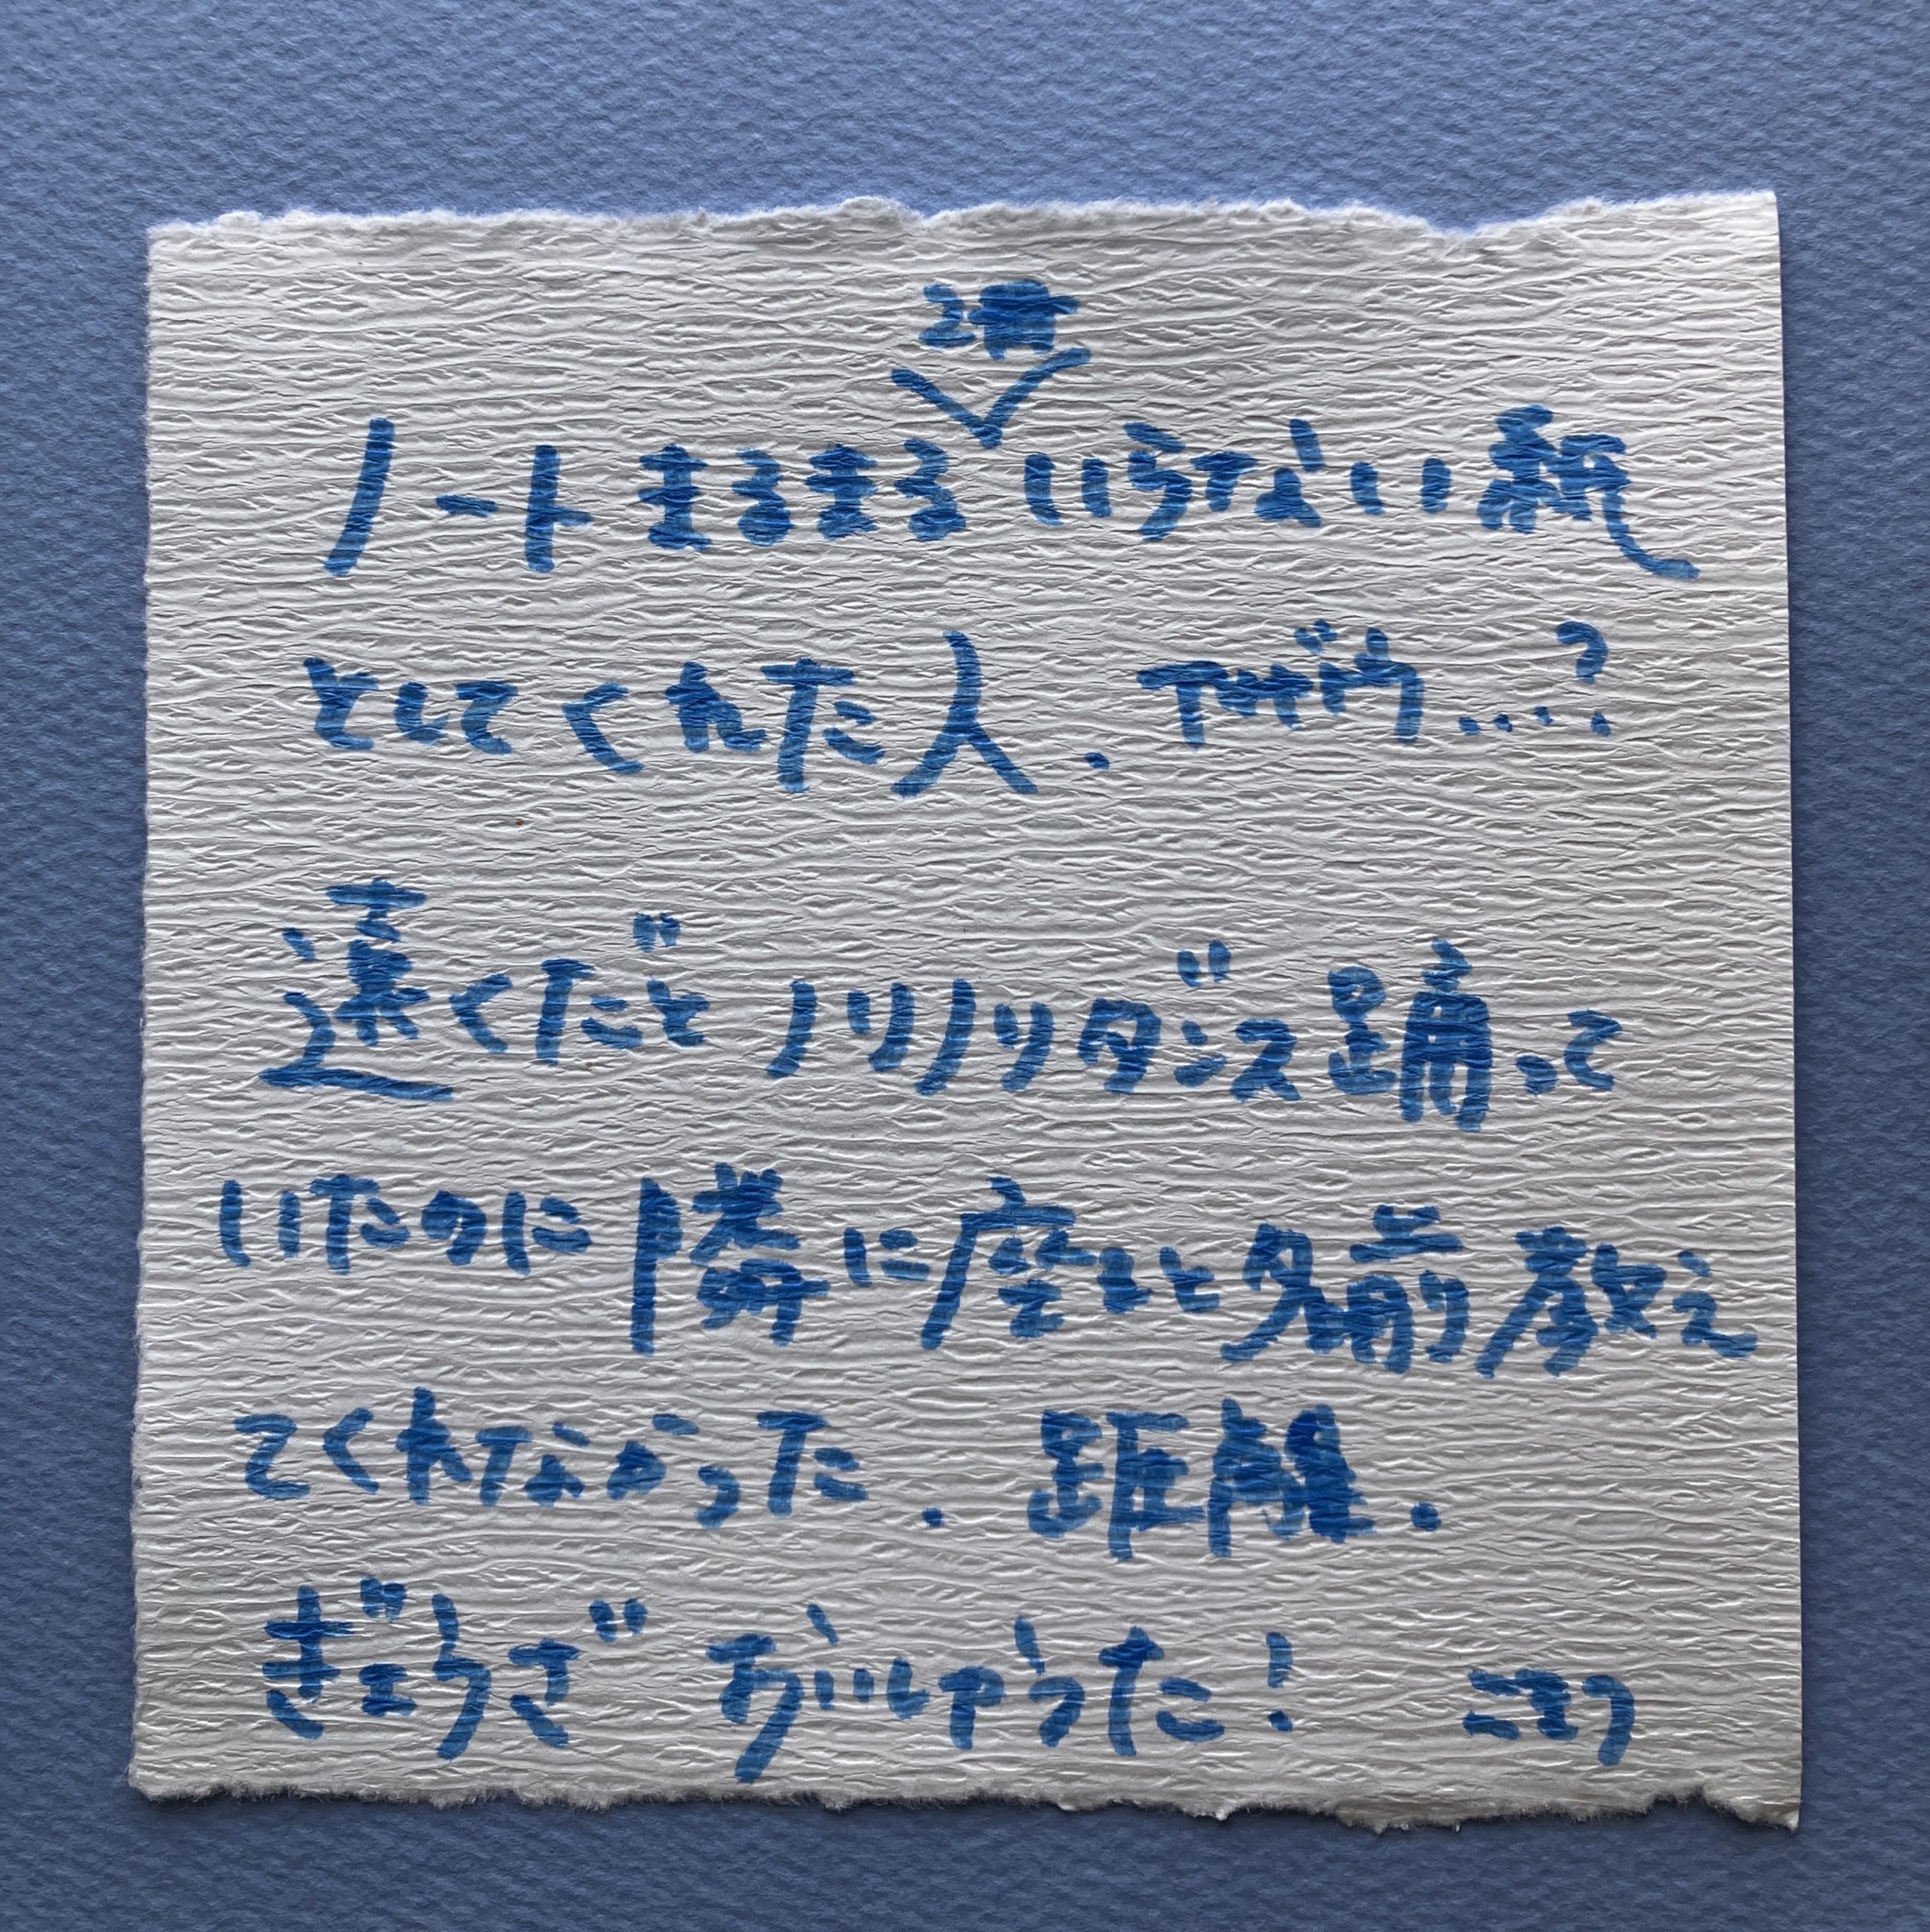 2冊
ノートまるまるいらない紙
としてくれた人. ...?
遠くだとノリノリダンス踊って
いたのに隣に座ると名前教え
てくれなかった. 距離.
ぎょうざ !